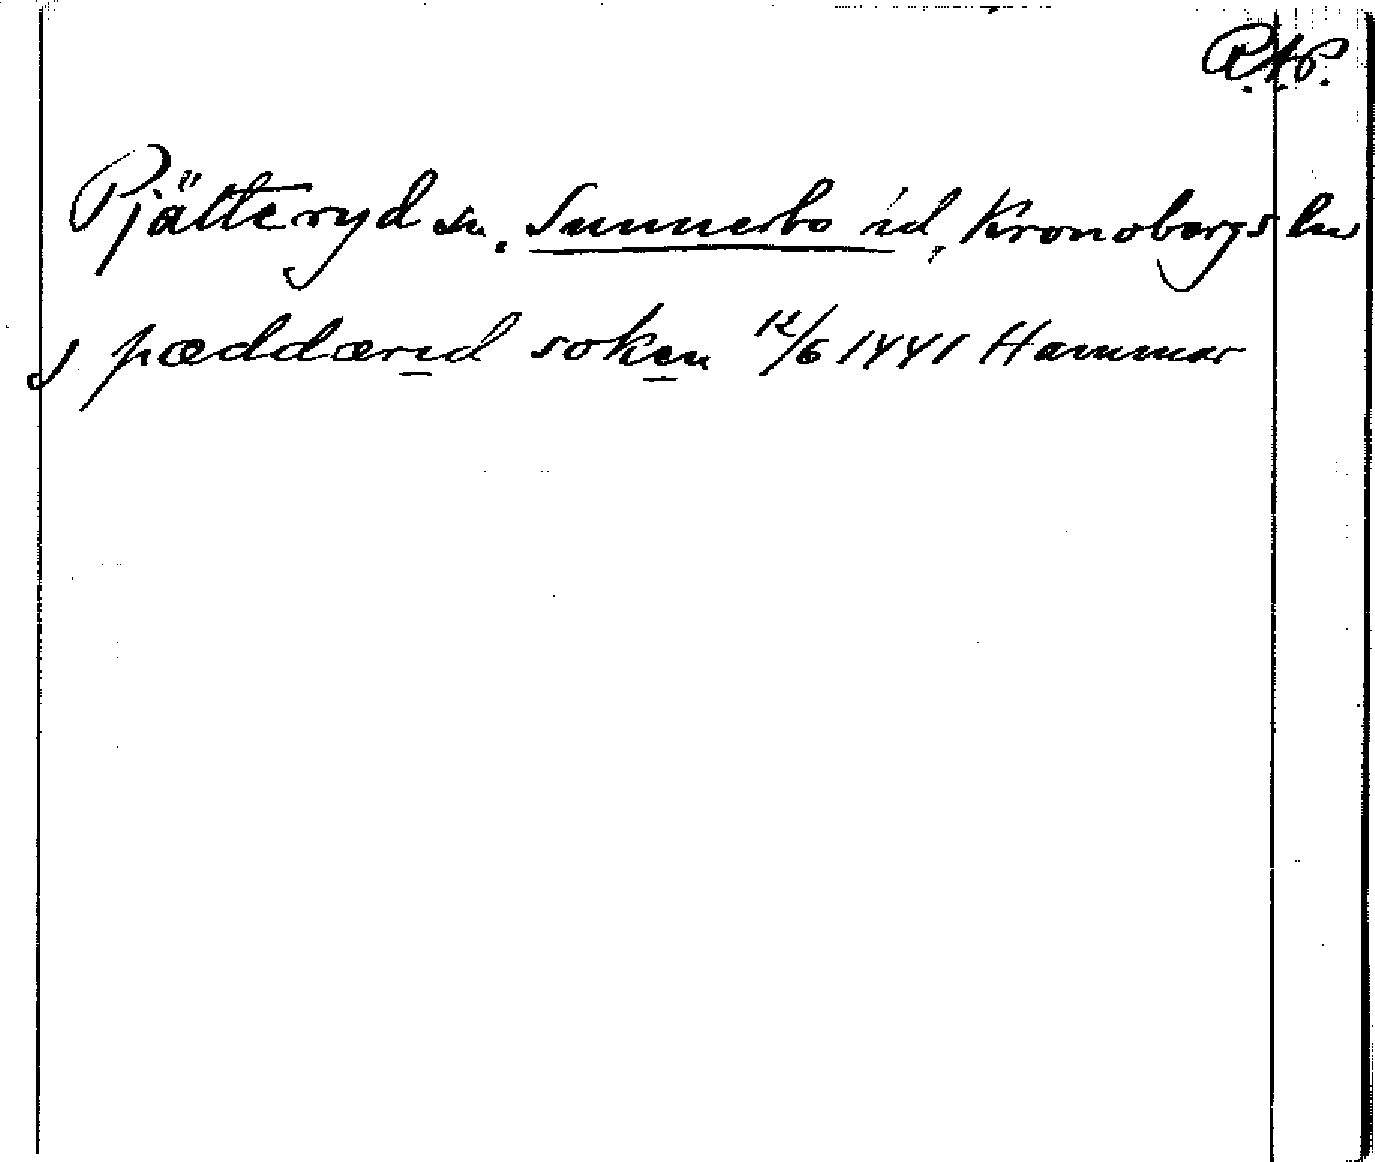 R.A.P.
Pjätteryd sn. Sunnerbo hd, Kronobergs län
J pæddærid soken 12/6 1441 Hammar